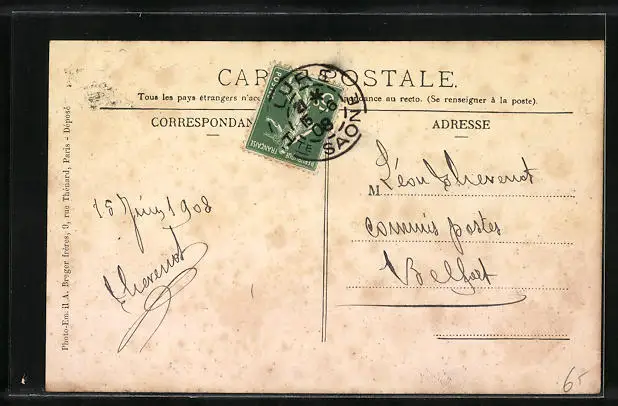 CARTE POSTALE.
Tous les pays étrangers n'acc dance au recto. (Se renseigner à la poste).
CORRESPONDAN
ADRESSE
LURE
Hᵀᴱ SAONE
08
POSTES
RÉPUBLIQUE FRANÇAISE
15 Juin 1908
Thevenot
M Léon Thevenot
commis postes
Belfort
Photo-Em. il A. Breger frères, 9, rue Thénard, Paris - Déposé
6-